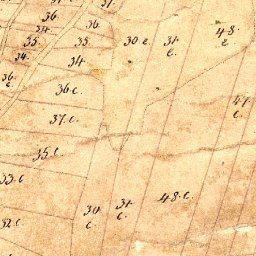 36.
36.
34.
35.
33.
30 c
31.
c.
48.
c
34.
34.
36
c
36 c.
47.
c.
37. c.
35. c
33 c
30
c.
31.
c.
48. c.
32 c